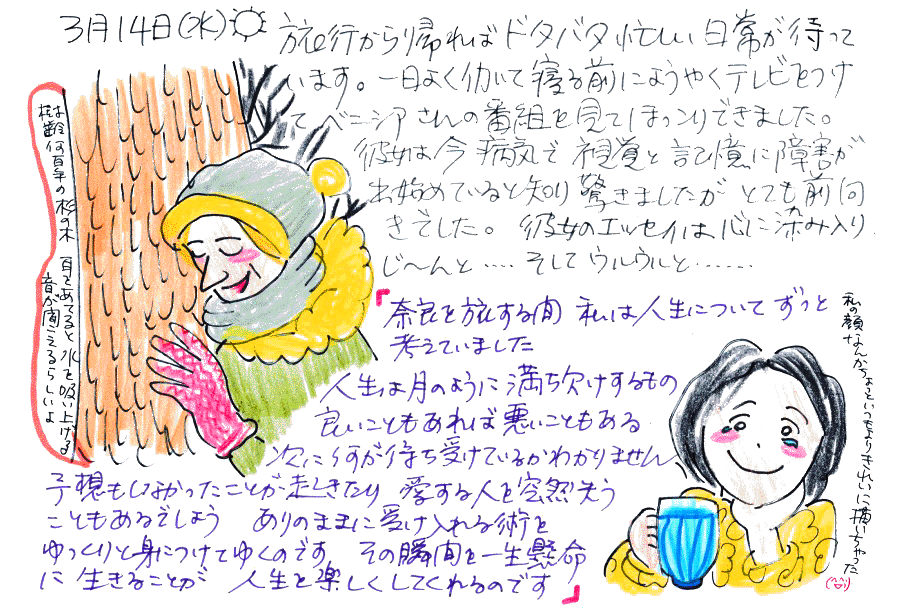 3月14日(水)
旅行から帰ればドタバタ忙しい日常が待って
います。一日よく働いて寝る前にようやくテレビをつけ
てベニシアさんの番組を見てほっこりできました。
彼女は今病気で視覚と記憶に障害が
お始めていると知り驚きましたがとても前向
きでした。彼女のエッセイは心に染み入り
じ〜んと‥‥そしてウルウルと‥‥‥
樹齢何百年の杉の木
耳をあてると水を吸い上げる
音が聞こえるらしいよ
「奈良を旅する間 私は人生についてずっと
考えていました
人生は月のように満ち欠けするもの
良いこともあれば悪いこともある
次に何が待ち受けているかわかりません
予想もしなかったことが起きたり 愛する人を突然失う
こともあるでしょう ありのままに受け入れる術を
ゆっくりと身につけてゆくのです その瞬間を一生懸命
に生きることが 人生を楽しくしてくれるのです」
私の顔なんかちょっといつもよりきれいに描いちゃった
(笑)